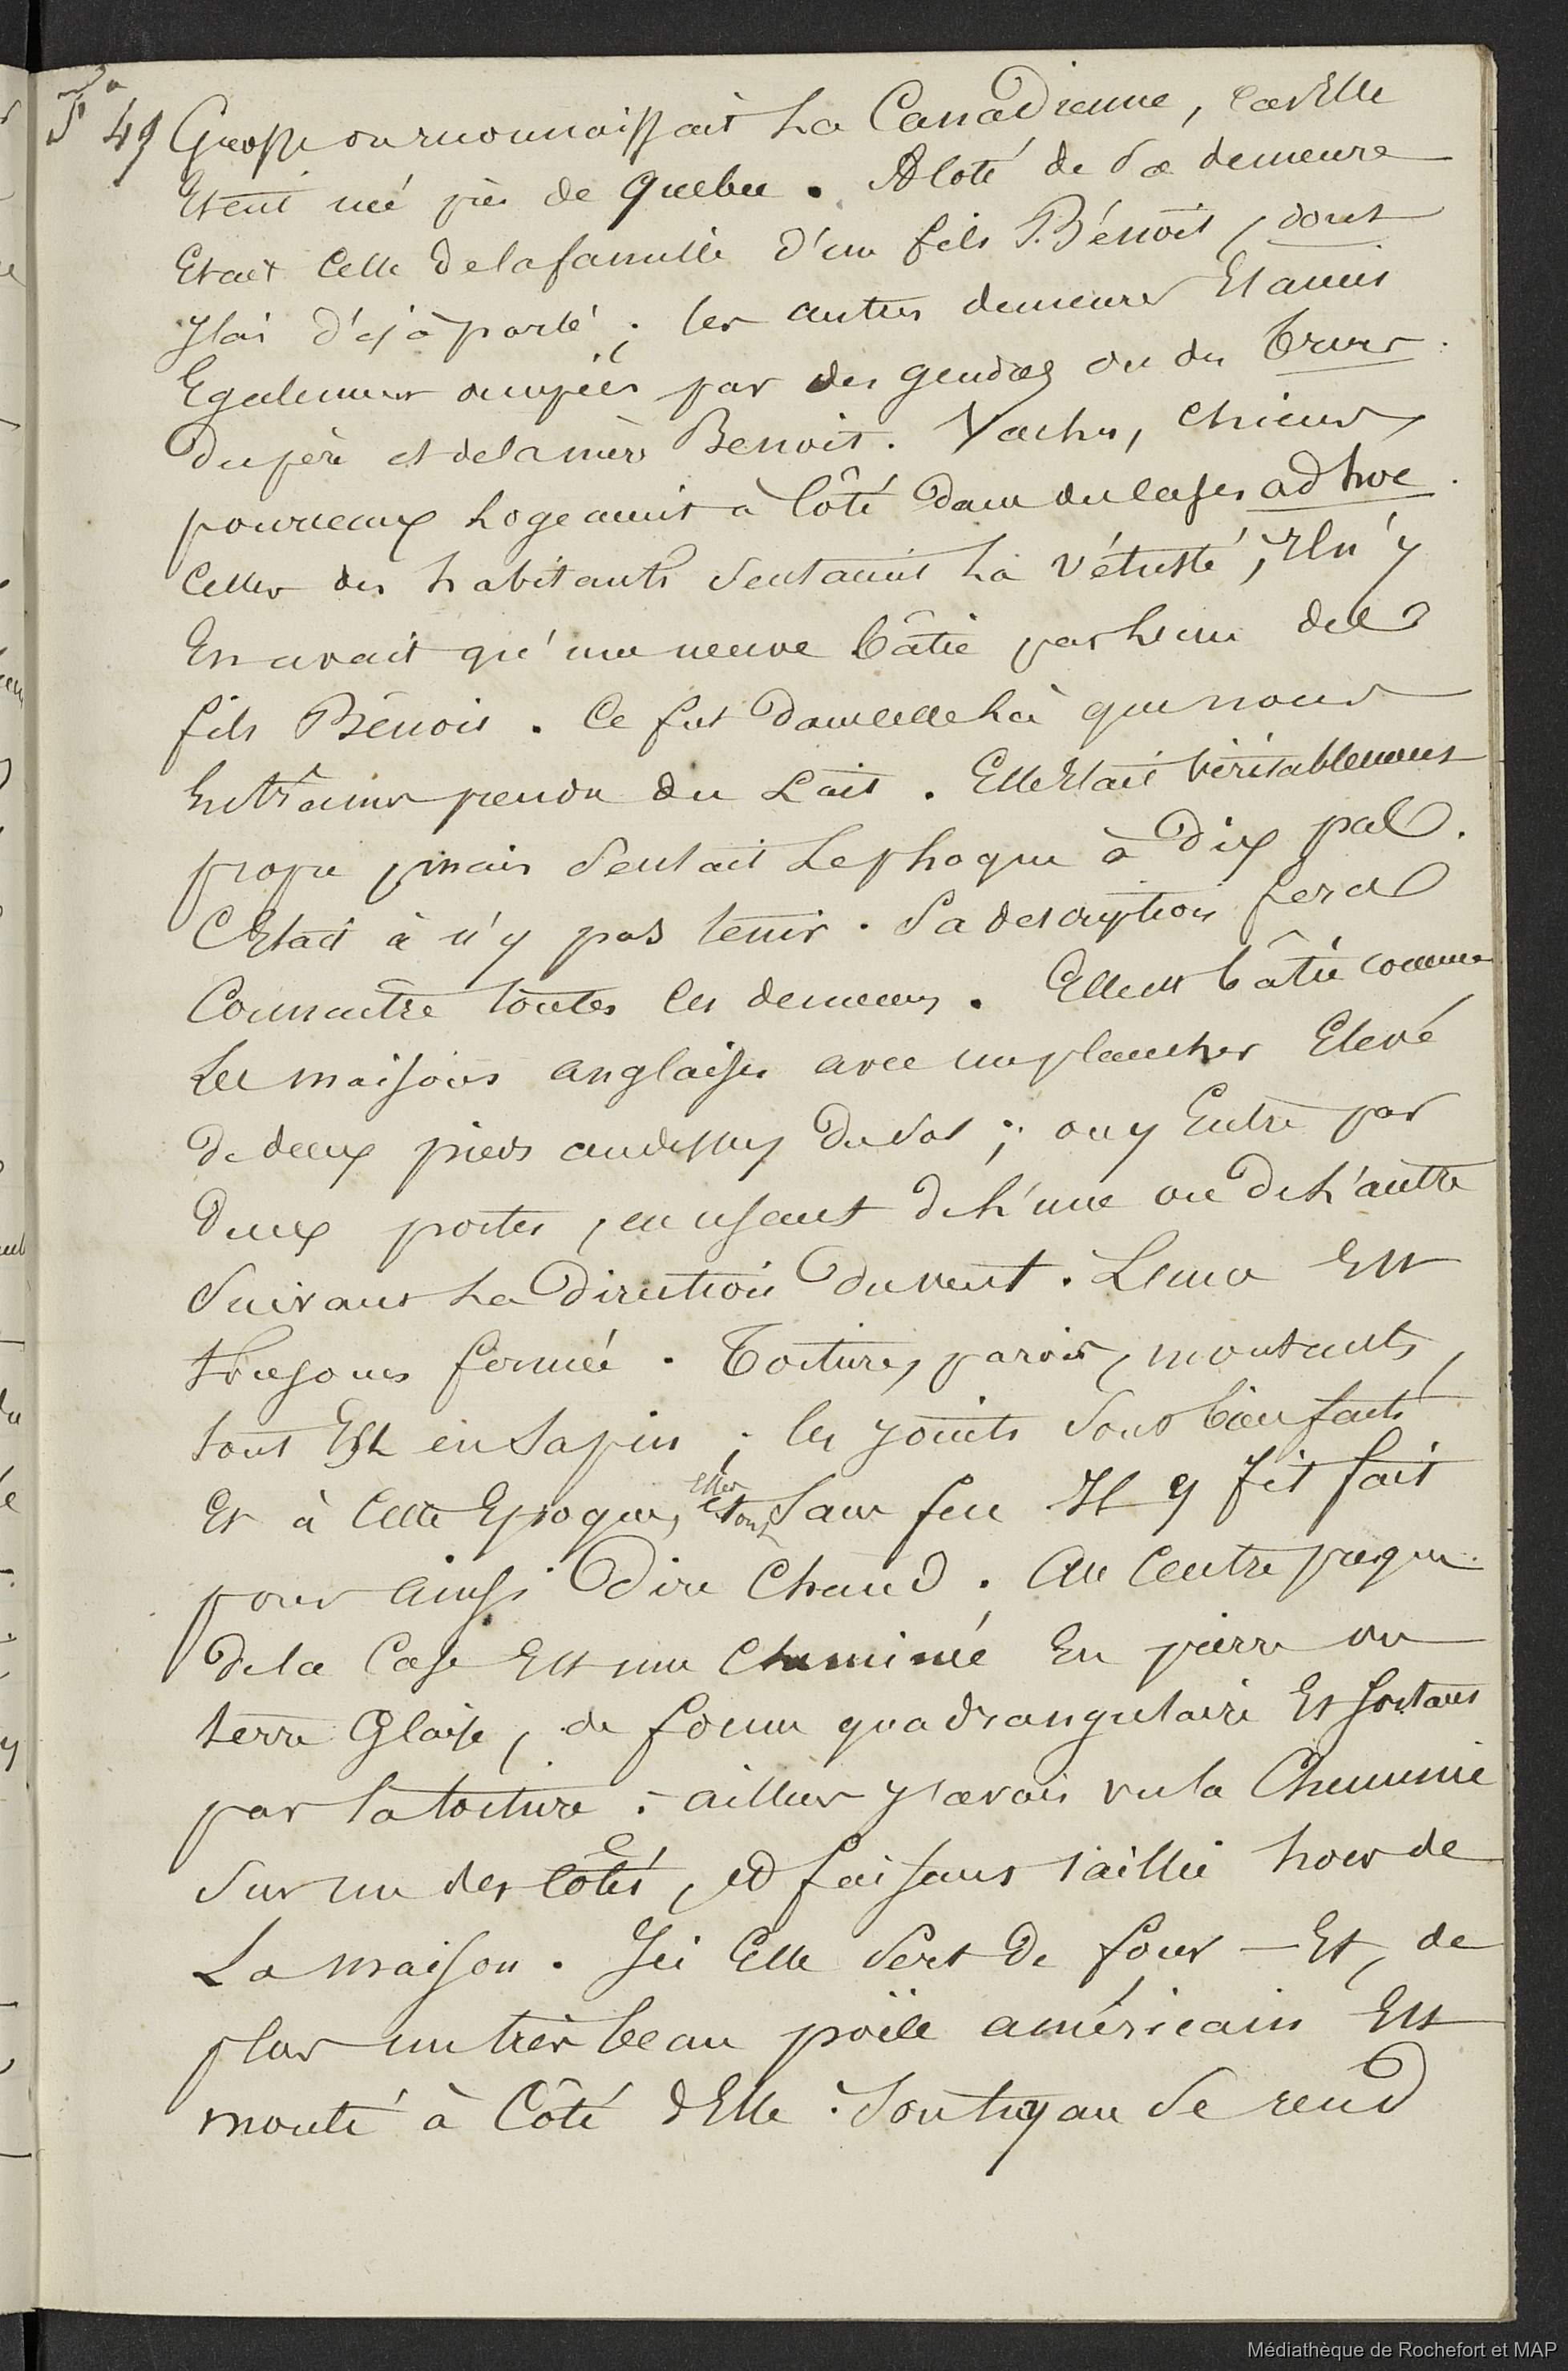 49 Grosse on reconnaissait La Canadienne, Car Elle
Etait né près de Quebec. A Coté de Sa demeure
Etait Celle de la famille d'un fils Bénoit, dont
J'ai déjà parlé; les autres demeures Etaient
Egalement occupées par des gendres ou des brus
du père et de la mère Benoit. Vaches, chiens,
pourceaux Logeaient à Côté dans des Cases ad hoc.
Celles des habitants Sentaient La Vétusté, Il n'y
En avait qu'une neuve bâtie par L'un des
fils Bénoit. Ce fut dans Celle Là que nous
Entrâmes prendre du Lait. Elle Etait Véritablement
propre, mais Sentait Le phoque à Dix pas.
C'Etait à n'y pas tenir. Sa description fera
Connaître toutes les demeures. Elle est bâtie comme
Les maisons anglaises avec un plancher Elevé
De deux pieds au dessus du Sol; on y Entre par
Deux portes, en usant de L'une ou de L'autre
Suivant La Direction du vent. L'une Est
toujours fermée. Toiture, parois, montants,
tout Est en Sapin; les joints Sont bien faits
Et à Cette Epoque, Sans feu Il y fit fait
pour ainsi Dire Chaud. Au Centre presque
de la Case Est une Cheminée En pierre ou
terre Glaise, de forme quadrangulaire Et Sortant
par la toiture. ailleurs J'avais vu la Cheminée
Sur un des Côtés, et faisant saillie hors de
La maison. Ici Elle Sert De four – Et, de
plus un très beau poële américain Est
monté à Côté d'Elle. Son tuyau Se rend
Médiathèque de Rochefort et MAP